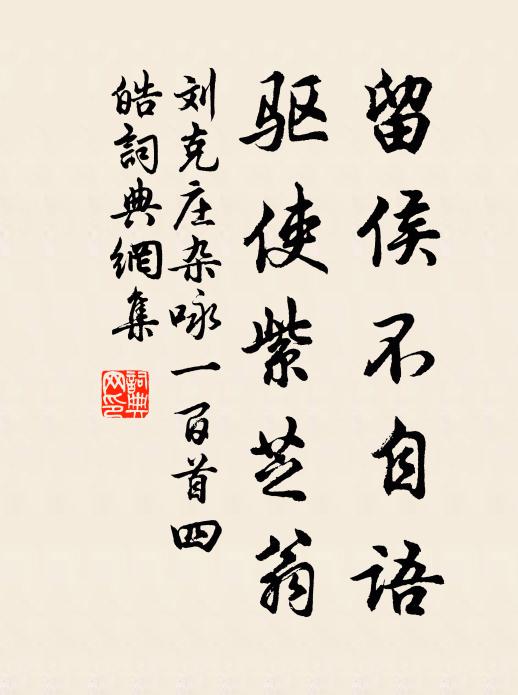 留侯不自语
驱使紫芝翁
刘克庄杂咏一百首四
皓詞典網集
詞典
网印